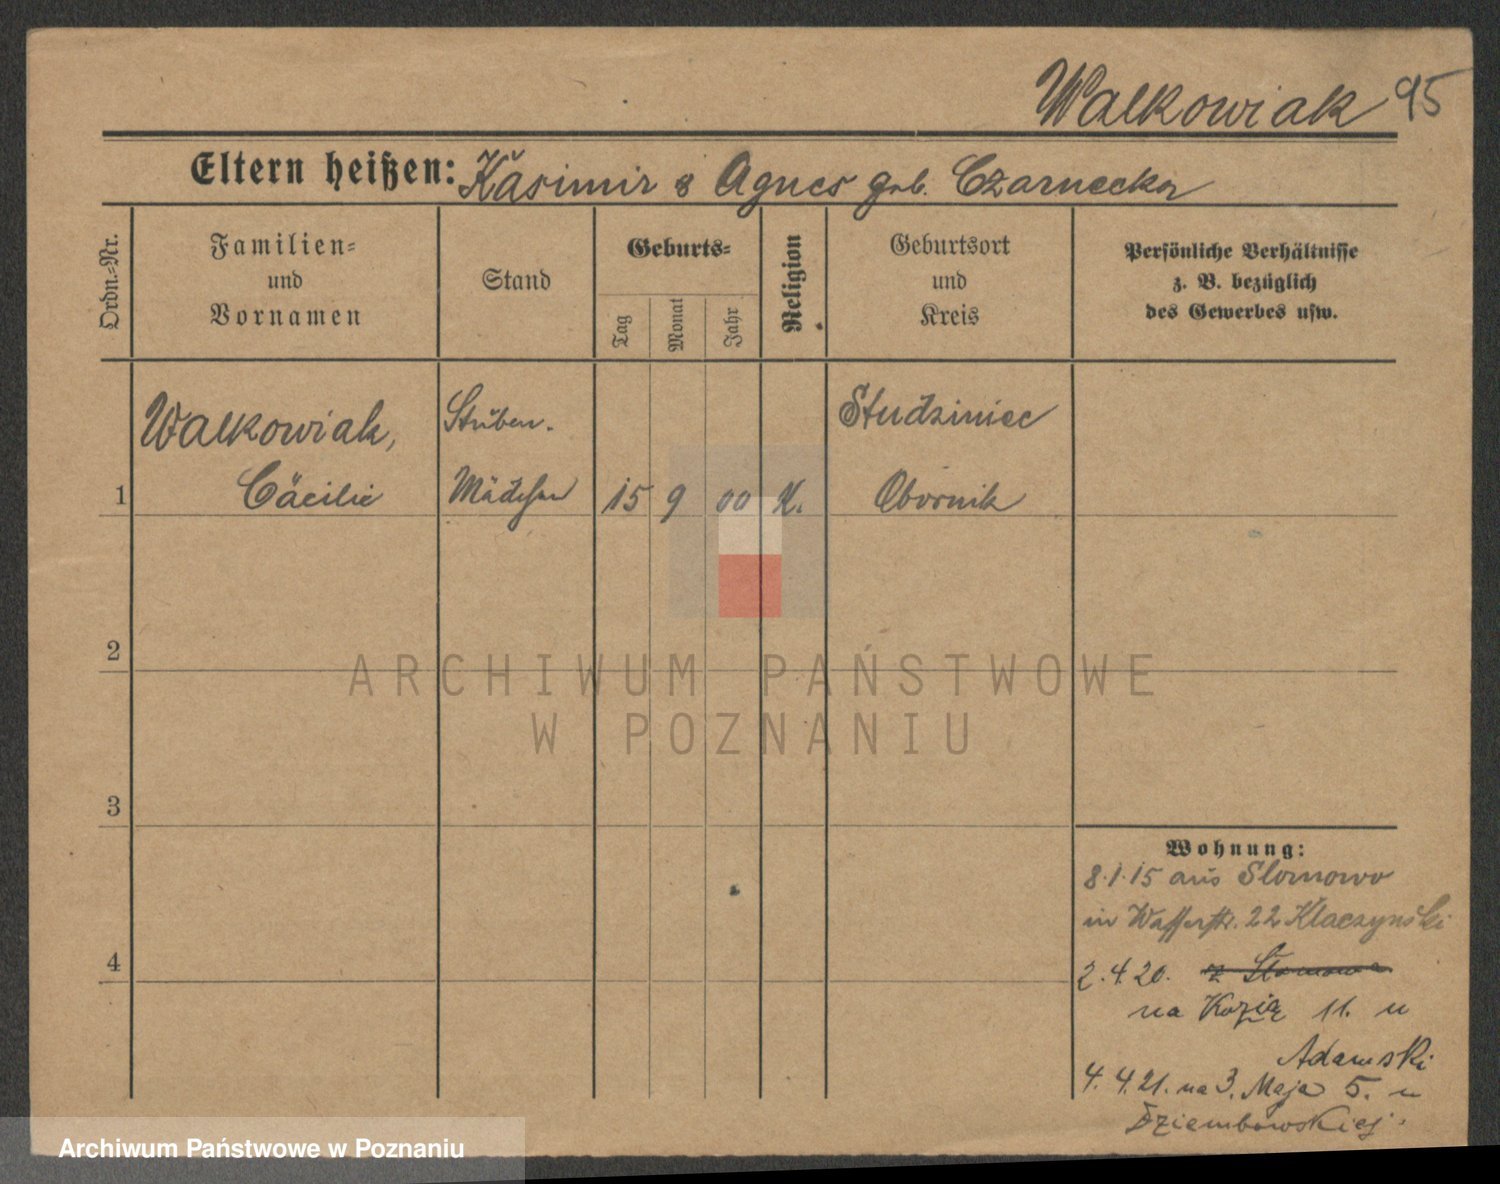 Walkowiak 95
Eltern heißen: Kasimir & Agnes geb. Czarnecka
Ordn.=Nr.
Familien=
und
Vornamen
Stand
Geburts=
Tag
Monat
Jahr
Religion
Geburtsort
und
Kreis
Persönliche Verhältnisse
z. B. bezüglich
des Gewerbes usw.
Walkowiak, Stuben. Studziniec
1 Cäcilie Mädchen 15 9 00 K. Obornik
2
3
4
Wohnung:
8.1.15 aus Slomowo
in Wasserstr. 22 Klaczyński
2.4.20. z Słomowa
na Kozią 11. u
Adamski
4.4.21. na 3. Maja 5. u
Dziembowskiej.
ARCHIWUM PAŃSTWOWE
W POZNANIU
Archiwum Państwowe w Poznaniu